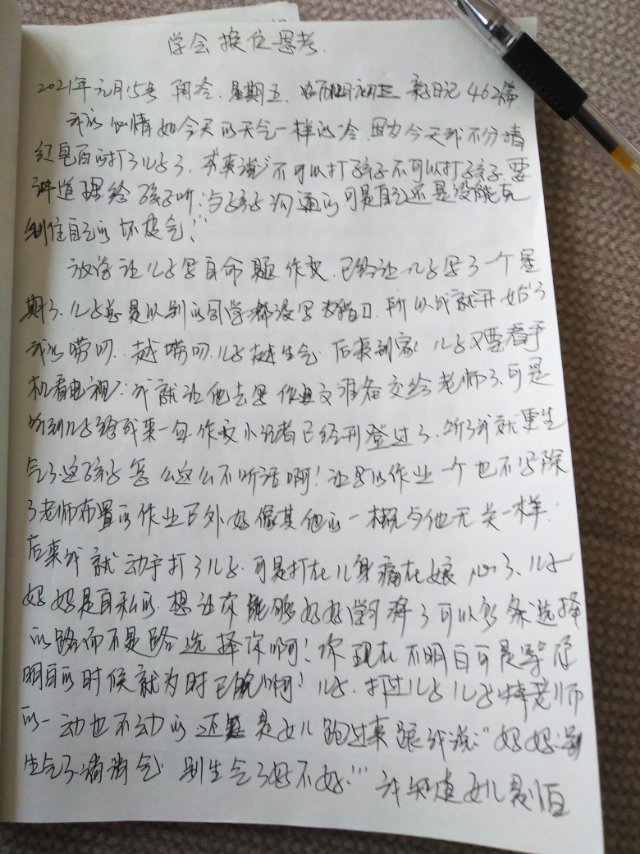 学会换位思考.
2021年元月15号 阴冷. 星期五. 亲日记462篇
我的心情如今天的天气一样的冷. 因为今天我不分清
红皂白的打了儿子了. 本来说"不可以打孩子不可以打孩子. 要
讲道理给孩子听. 与孩子沟通的可是自己还是没能克
制住自己的坏脾气!"
放学让儿子写自命题作文. 已经让儿子写了一个星
期了. 儿子总是以别的同学都没写为借口. 所以我就开始了
我的唠叨. 越唠叨. 儿子越生气. 后来到家 儿子又要看手
机看电视. 我就让他去写作文准备交给老师了. 可是
听到儿子给我来一句. 作文小记者已经刊登过了. 听了我就更生
气了这孩子怎么这么不听话啊! 让写的作业一个也不写除
了老师布置的作业已外好像其他的一概与他无关一样.
后来我就动手打了儿子. 可是打在儿身痛在娘心了. 儿子
妈妈是自私的. 想让你能够好好学习将了可以多条选择
的路而不是路选择你啊! 你现在不明白可是等你
明白的时候就为时已晚啊! 儿子. 打过儿子儿子
的一动也不动的 还是女儿跑过来跟我说:"妈妈别
生气了消消气. 别生气了好不好."